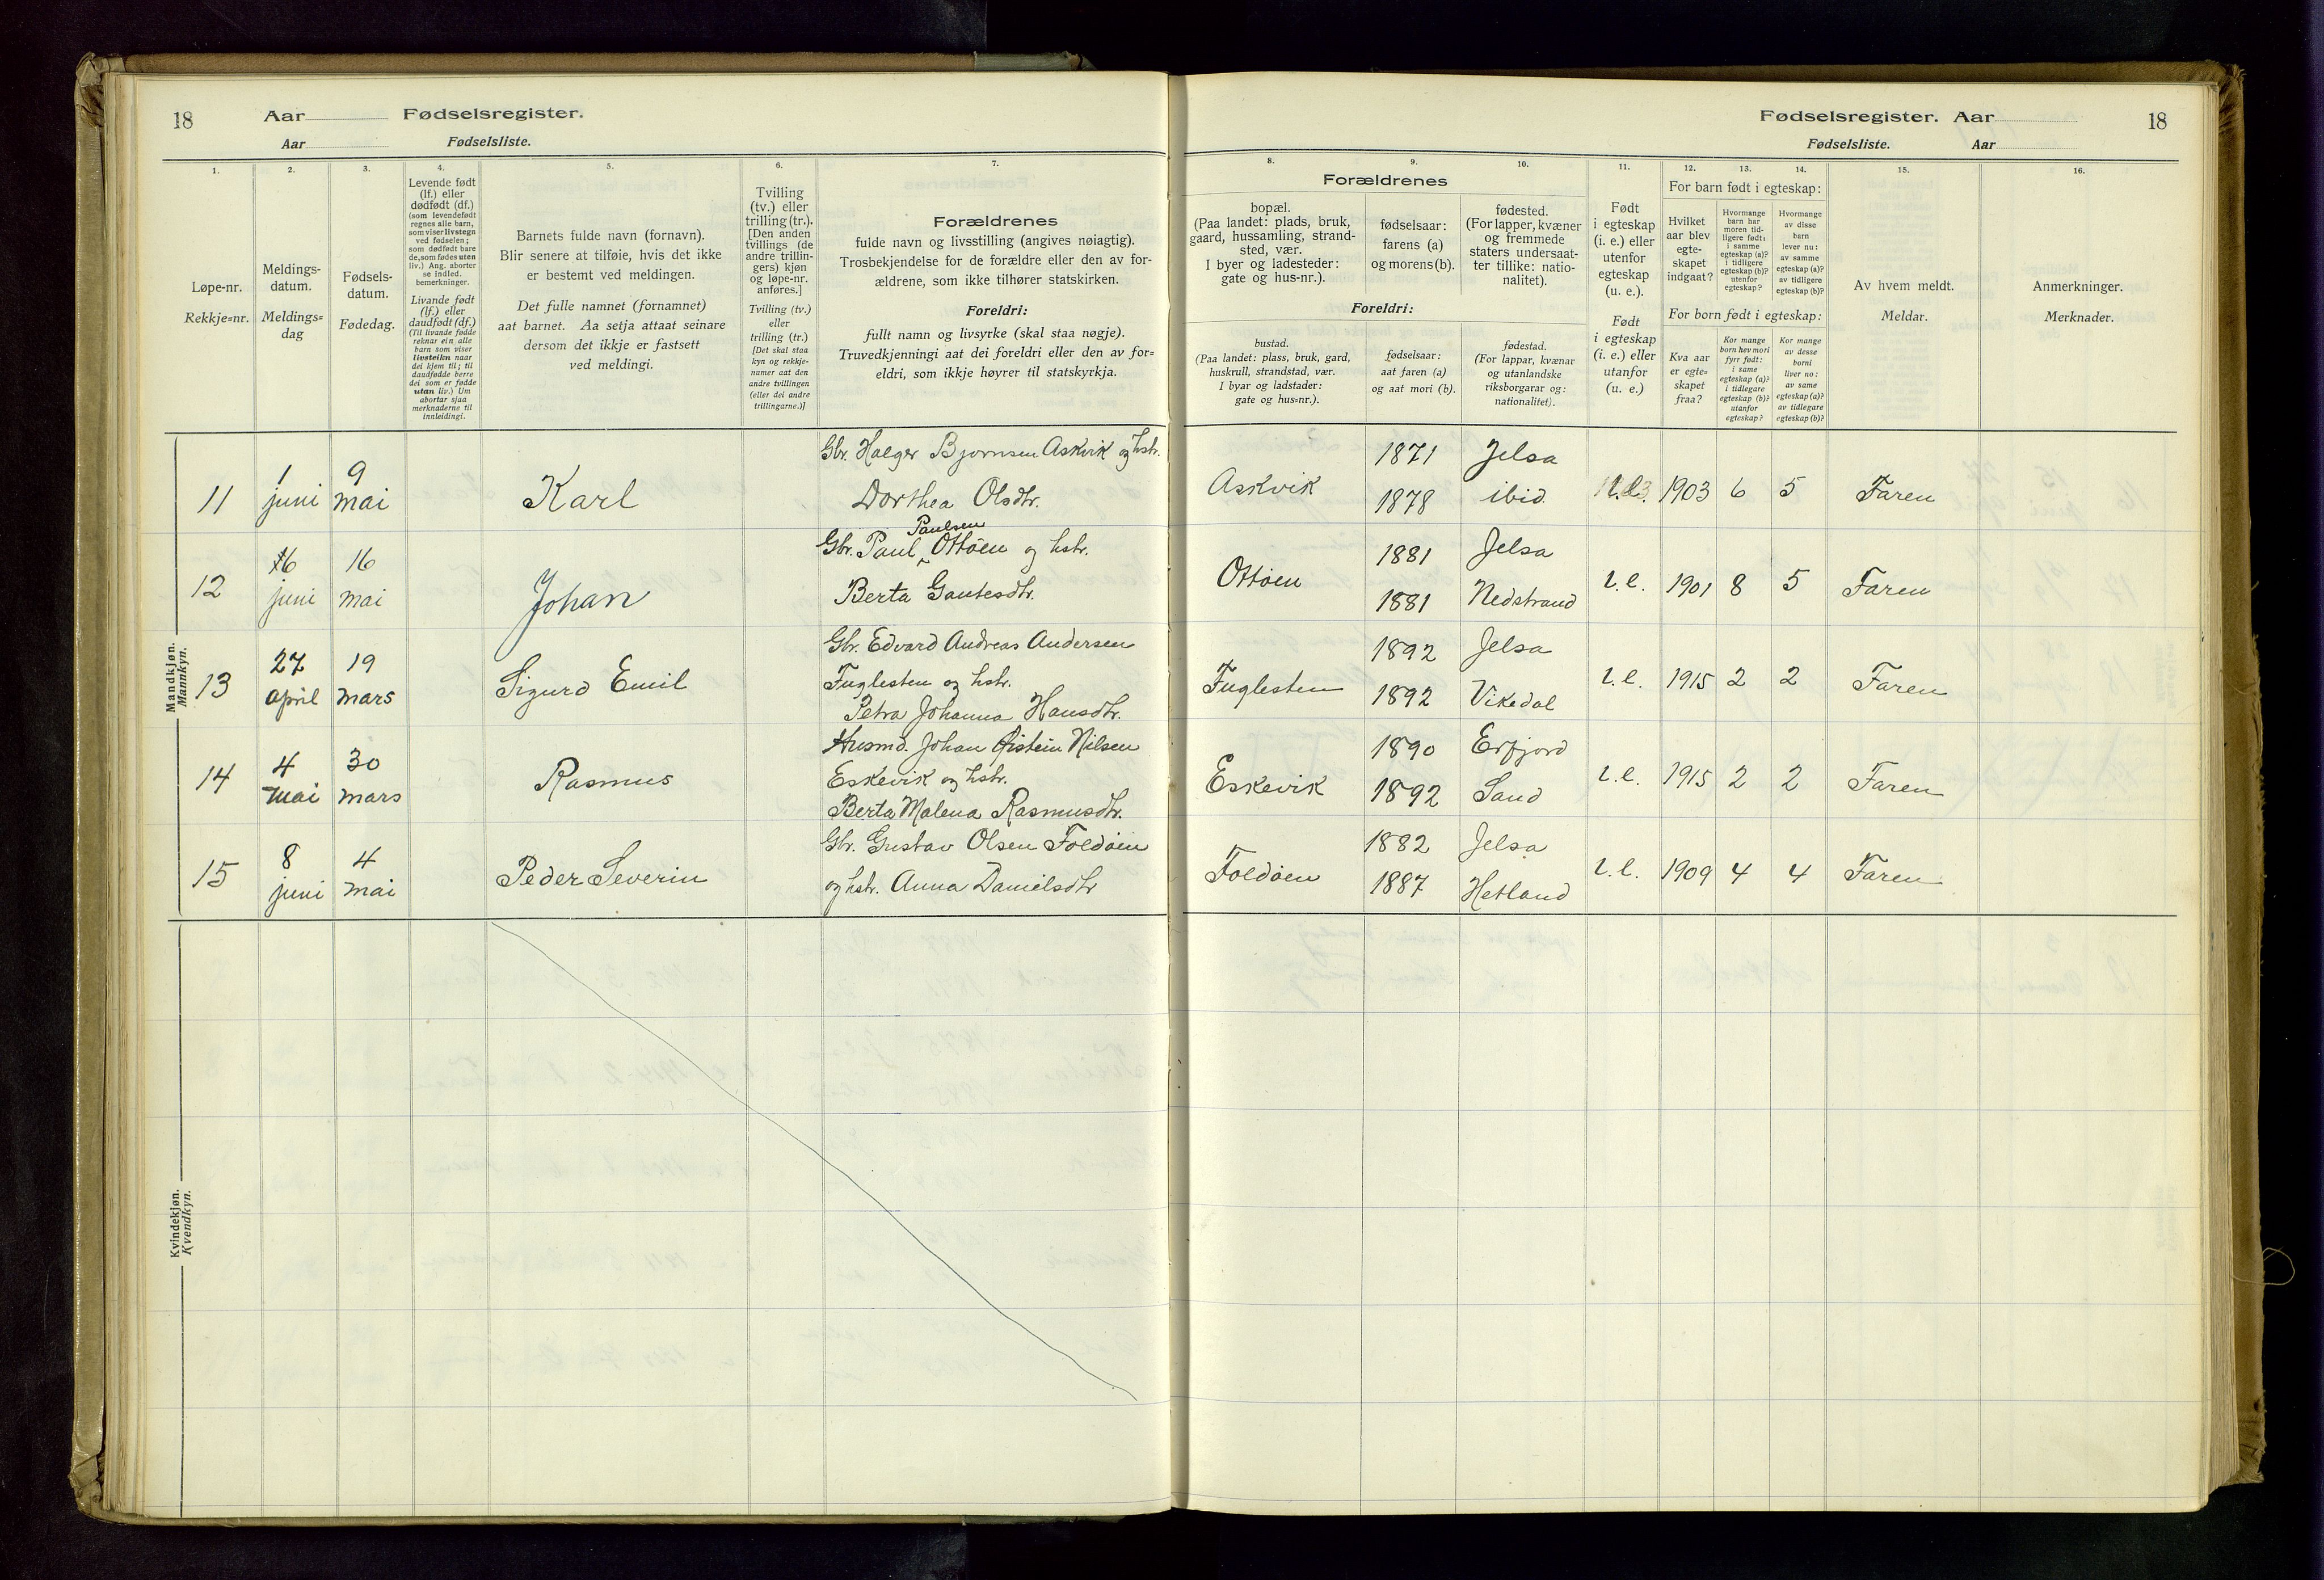 18 Aar Fødselsregister.
Aar Fødselsliste.
1.
Løpe-nr.
Rekkje=nr.
2.
Meldings-
datum.
Meldings=
dag
3.
Fødsels-
datum.
Fødedag.
4.
Levende født
(lf.) eller
dødfødt (df.)
(som levendefødt
regnes alle barn,
som viser livstegn
ved fødselen;
som dødfødt bare
de, som fødes uten
liv.) Ang. aborter
se indled.
bemerkninger.
Livande født
(lf.) eller
daudfødt (df.)
(Til livande fødde
reknar ein alle
barn som viser
livsteikn naar
dei kjem til; til
daudfødde berre
dei som er fødde
utan liv.) Um
abortar sjaa
merknaderne til
innleidingi.
5.
Barnets fulde navn (fornavn).
Blir senere at tilføie, hvis det ikke
er bestemt ved meldingen.
Det fulle namnet (fornamnet)
aat barnet. Aa setja attaat seinare
dersom det ikkje er fastsett
ved meldingi.
6.
Tvilling
(tv.) eller
trilling (tr.).
[Den anden
tvillings (de
andre trillin-
gers) kjøn
og løpe-nr.
anføres.]
Tvilling (tv.)
eller
trilling (tr.)
[Det skal staa
kyn og rekkje-
numer aat den
andre tvillingen
(eller dei andre
trillingarne.)]
7.
Forældrenes
fulde navn og livsstilling (angives nøiagtig).
Trosbekjendelse for de forældre eller den av for-
ældrene, som ikke tilhører statskirken.
Foreldri:
fullt namn og livsyrke (skal staa nøgje).
Truvedkjenningi aat dei foreldri eller den av for=
eldri, som ikkje høyrer til statskyrkja.
Fødselsregister. Aar 18
Fødselsliste. Aar
Forældrenes
8.
bopæl.
(Paa landet: plads, bruk,
gaard, hussamling, strand-
sted, vær.
I byer og ladesteder:
gate og hus-nr.).
9.
fødselsaar:
farens (a)
og morens (b).
10.
fødested.
(For lapper, kvæner
og fremmede
staters undersaat-
ter tillike: natio-
nalitet).
Foreldri:
bustad.
(Paa landet: plass, bruk, gard,
huskrull, strandstad, vær.
I byar og ladstader:
gate og hus=nr.).
fødselsaar:
aat faren (a)
og aat mori (b).
fødestad.
(For lappar, kvænar
og utanlandske
riksborgarar og:
nationalitet).
11.
Født
i egteskap
(i. e.) eller
utenfor
egteskap
(u. e.).
Født
i egteskap
(i. e.) eller
utanfor
(u. e.)
12. 13. 14.
For barn født i egteskap:
Hvilket
aar blev
egte-
skapet
indgaat?
Hvormange
barn har
moren tid-
ligere født:
i samme
egteskap (a)?
i tidligere
egteskap (b)?
utenfor
egteskap?
Hvormange
av disse
barn
lever nu:
av samme
egteskap (a)?
av tidligere
egteskap (b)?
For born født i egteskap:
Kva aar
er egte=
skapet
fraa?
Kor mange
born hev mori
fyrr født:
i same
egteskap (a)?
i tidlegare
egteskap (b)?
utanfor
egteskap?
Kor mange
av desse
borni
liver no:
av same
egteskap (a)?
av tidlegare
egteskap (b)?
15.
Av hvem meldt.
Meldar.
16.
Anmerkninger.
Merknader.
Mandkjøn.
Mannkyn.
11 1 juni 9 mai Karl
Gbr. Halger Bjørnsen Askvik og hstr.
Dorthea Olsdtr.
Askvik 1871 Jelsa
1878 ibid. i.e. 1903 6 5 Faren
12 16 juni 16 mai Johan
Paulsen
Gbr. Paul Ottøen og hstr.
Berta Gautesdtr.
Ottøen 1881 Jelsa
1881 Nedstrand i.e. 1901 8 5 Faren
13 27 april 19 mars Sigurd Emil
Gbr. Edvard Andreas Andersen
Fuglesten og hstr.
Petra Johanna Hansdtr.
Fuglesten 1892 Jelsa
1892 Vikedal i.e. 1915 2 2 Faren
14 4 mai 30 mars Rasmus
Husmd. Johan Øistein Nilsen
Eskevik og hstr.
Berta Malena Rasmusdtr.
Eskevik 1890 Erfjord
1892 Sand i.e. 1915 2 2 Faren
15 8 juni 4 mai Peder Severin
Gbr. Gustav Olsen Foldøen
og hstr. Anna Danielsdtr
Foldøen 1882 Jelsa
1887 Hetland i.e. 1909 4 4 Faren
Kvindekjøn.
Kvendkyn.